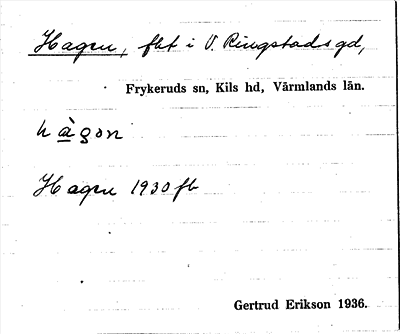 Hagen, fbt i V. Ringstads gd,
Frykeruds sn, Kils hd, Värmlands län.
hàgɔn
Hagen 1930 fb
Gertrud Erikson 1936.